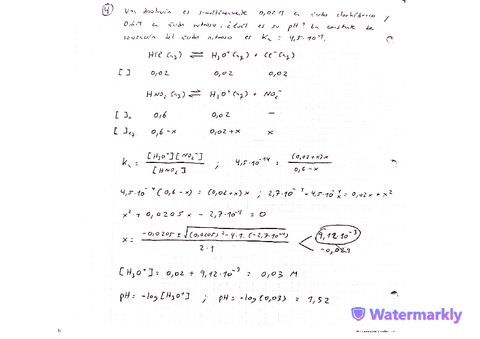 4) Una disolución es simultáneamente 0,02M en ácido clorhídrico y
0,6M en ácido nitroso. ¿Cuál es su pH? La constante de
ionización del ácido nitroso es Ka = 4,5·10⁻⁴.
HCl (aq) ⇌ H₃O⁺ (aq) + Cl⁻ (aq)
[ ] 0,02 0,02 0,02
HNO₂ (aq) ⇌ H₃O⁺ (aq) + NO₂⁻
[ ]₀ 0,6 0,02 —
[ ]eq 0,6-x 0,02+x x
Ka = [H₃O⁺][NO₂⁻] / [HNO₂] ; 4,5·10⁻⁴ = (0,02+x)x / 0,6-x
4,5·10⁻⁴ (0,6-x) = (0,02+x)x ; 2,7·10⁻⁴ - 4,5·10⁻⁴x = 0,02x + x²
x² + 0,0205x - 2,7·10⁻⁴ = 0
x = -0,0205 ± √(0,0205)² - 4·1·(-2,7·10⁻⁴) / 2·1 9,12·10⁻³
[H₃O⁺] = 0,02 + 9,12·10⁻³ = 0,03 M
pH = -log [H₃O⁺] ; pH = -log (0,03) = 1,52
Watermarkly